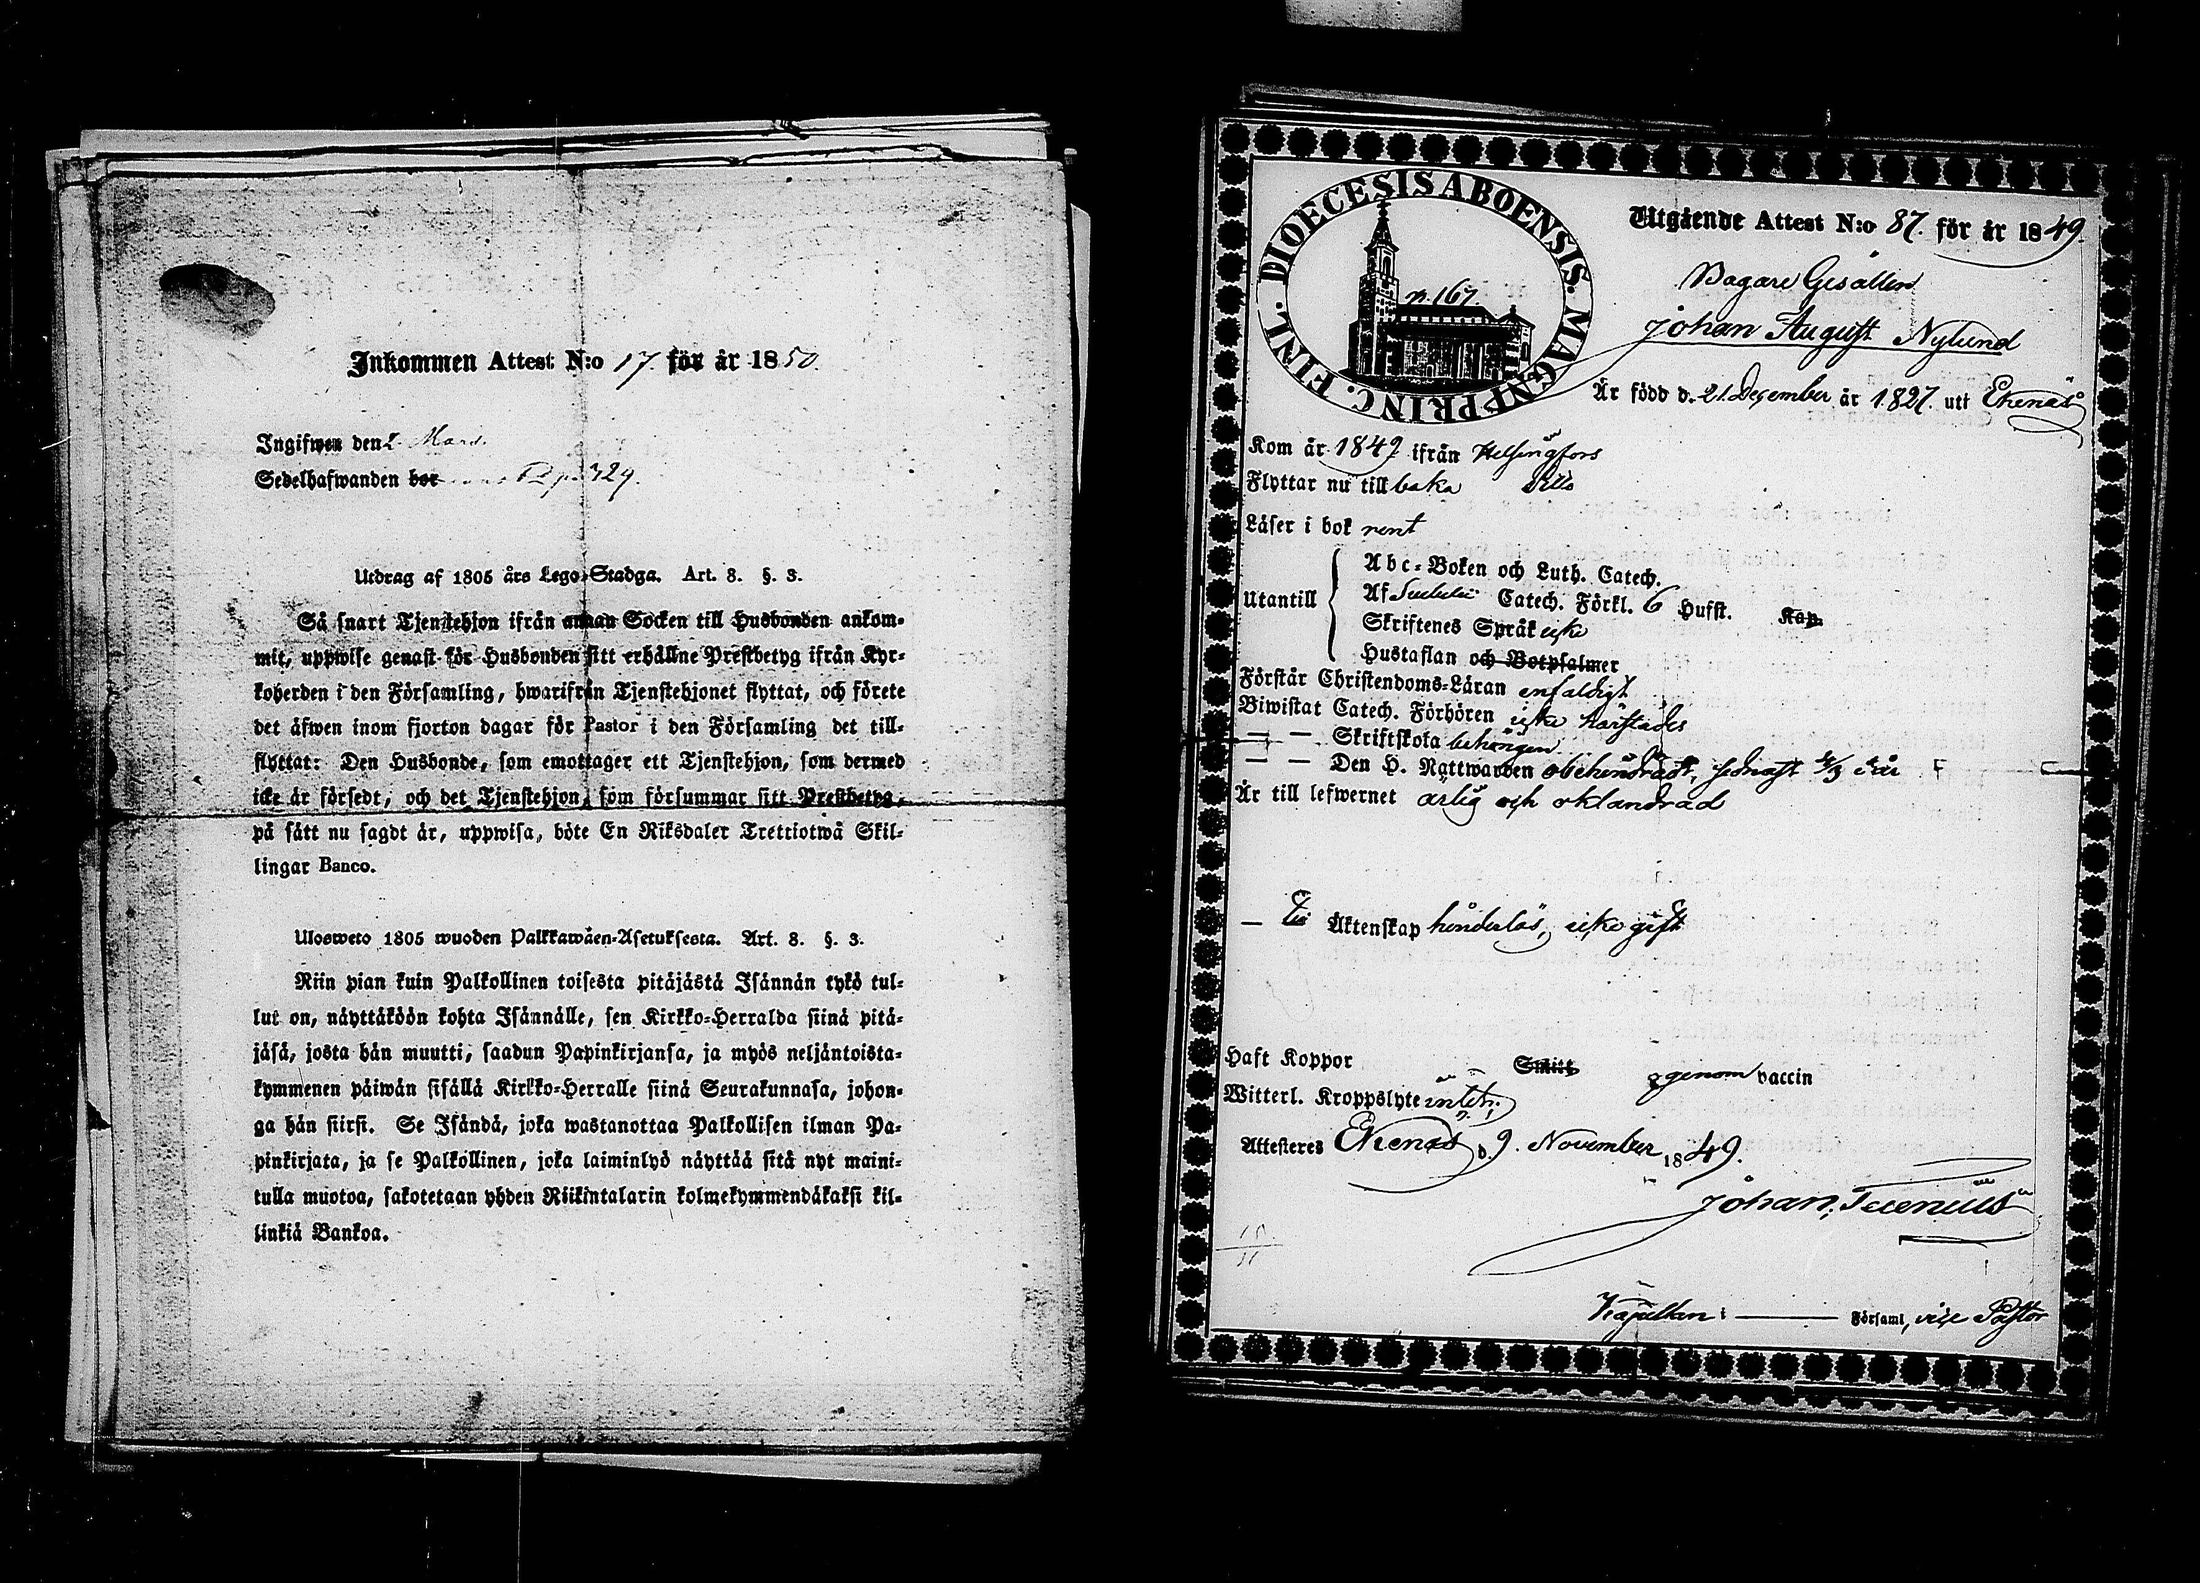 Inkommen Attest N:o 17. för år 1850.
Ingifwen den 2 Mars.
Sedelhafwanden bor p. 429.
Utdrag af 1805 års Lego-Stadga. Art. 8. §. 3.
Så snart Tjenstehjon ifrån annan Socken till Husbonden ankom-
mit, uppwise genast för Husbonden sitt erhållne Prestbetyg ifrån Kyr-
koherden i den Församling, hwarifrån Tjenstehjonet flyttat, och förete
det äfwen inom fjorton dagar för Pastor i den Församling det till-
flyttat: Den Husbonde, som emottager ett Tjenstehjon, som dermed
icke är försedt, och det Tjenstehjon, som försummar sitt Prestbetyg,
på sätt nu sagdt är, uppwisa, böte En Riksdaler Trettiotwå Skil-
lingar Banco.
Ulosweto 1805 wuoden Palkkawäen-Asetuksesta. Art. 8. §. 3.
Niin pian kuin Palkollinen toisesta pitäjästä Isännän tykö tul-
lut on, näyttäköön kohta Isännälle, sen Kirkko-Herralda siinä pitä-
jäsä, josta hän muutti, saadun Papinkirjansa, ja myös neljäntoista-
kymmenen päiwän sisällä Kirkko-Herralle siinä Seurakunnasa, johon-
ga hän siirsi. Se Isändä, joka wastanottaa Palkollisen ilman Pa-
pinkirjata, ja se Palkollinen, joka laiminlyö näyttää sitä nyt maini-
tulla muotoa, sakotetaan yhden Riikintalarin kolmekymmendäkaksi kil-
linkiä Bankoa.
DIOECESIS ABOENSIS. MAGNI PRINC. FINL.
p. 167.
Utgående Attest N:o 87. för år 1849.
Bagare Gesällen
Johan August Nylund
Är född d. 21 December år 1827. uti Ekenäs
Kom år 1849 ifrån Helsingfors
Flyttar nu till baka Dito
Läser i bok rent
Utantill
Abc-Boken och Luth. Catech.
Af Catech. Förkl. 6 Hufst. Kap.
Skriftenes Språk icke
Hustaflan och Botpsalmer
Förstår Christendoms-Läran enfaldigt
Biwistat Catech. Förhören icke härstädes
— — Skriftskola behörigen
— — Den H. Nattwarden obehindradt, sednast i år
Är till lefwernet ärlig och oklandrad
— Till Äktenskap hinderlös, icke gift
Haft Koppor Smitt genom vaccin
Witterl. Kroppslyte intet;
Attesteres Ekenäs d. 9. November 1849.
Johan
Kapellan i — Församl, vice Pastor